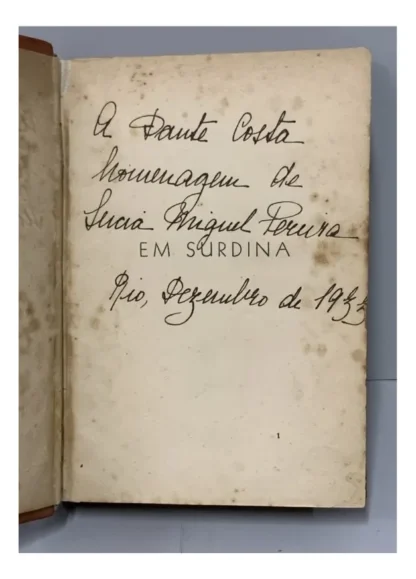 A Dante Costa
homenagem de
Lucia Miguel Pereira
EM SURDINA
Rio, Dezembro de 1933
1